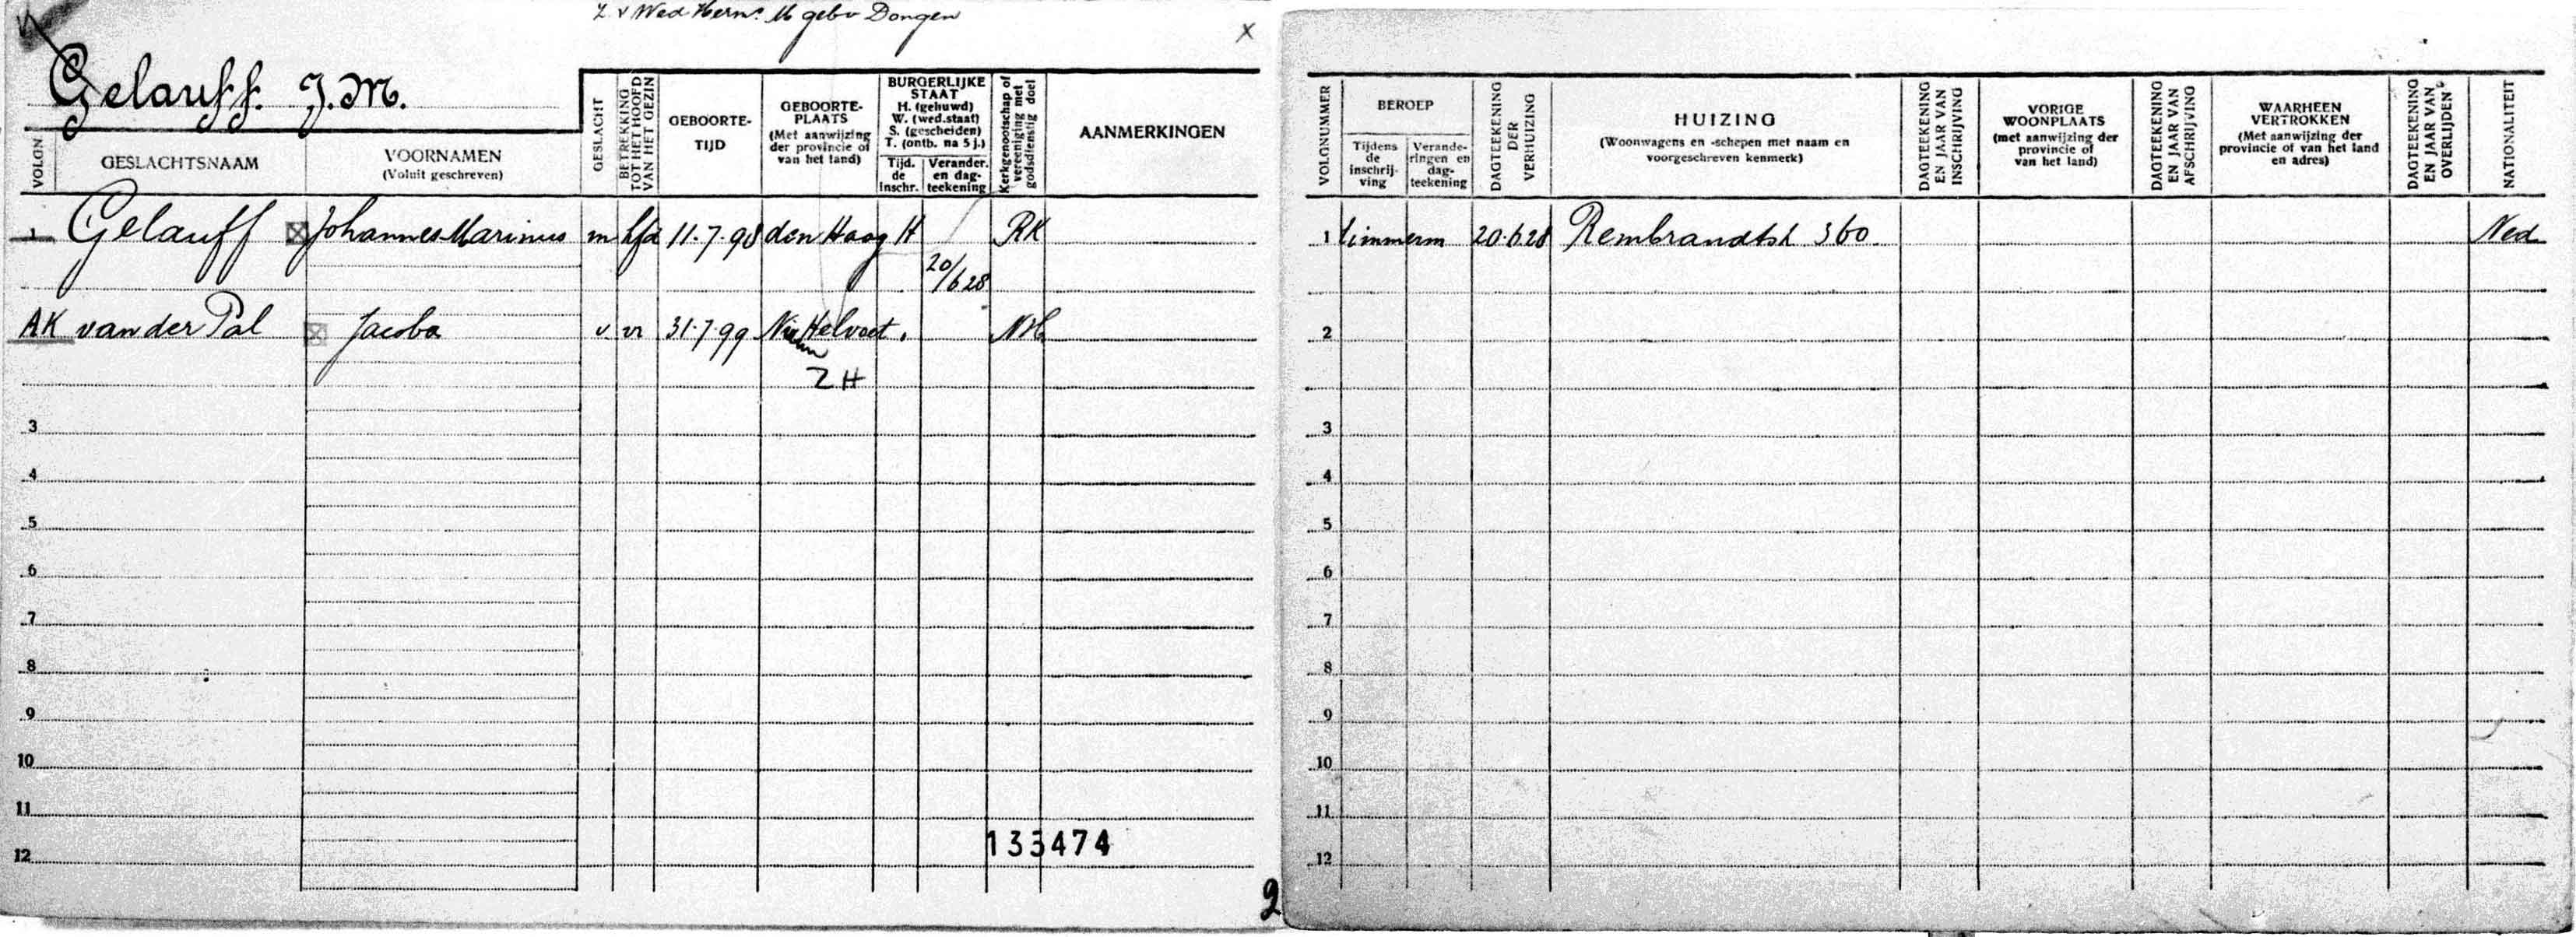 Z v Wed Herns M geb v Dongen
x
Gelauff. J. M.
VOLGN.
GESLACHTSNAAM
VOORNAMEN
(Voluit geschreven)
GESLACHT
BETREKKING TOT HET HOOFD VAN HET GEZIN
GEBOORTE-
TIJD
GEBOORTE-
PLAATS
(Met aanwijzing
der provincie of
van het land)
BURGERLIJKE
STAAT
H. (gehuwd)
W. (wed.staat)
S. (gescheiden)
T. (ontb. na 5 j.)
Tijd.
de
inschr.
Verander.
en dag-
teekening
Kerkgenootschap of vereeniging met godsdienstig doel
AANMERKINGEN
1 Gelauff Johannes Marinus m hfd 11.7.98 den Haag H RK
20/6 28
AK van der Pal Jacoba v. vr 31.7.99 Nieuw Helvoet. NH
ZH
3
4
5
6
7
8
9
10
11
12
133474
2
VOLGNUMMER
BEROEP
Tijdens
de
inschrij-
ving
Verande-
ringen en
dag-
teekening
DAGTEEKENING DER VERHUIZING
HUIZING
(Woonwagens en -schepen met naam en
voorgeschreven kenmerk)
DAGTEEKENING EN JAAR VAN INSCHRIJVING
VORIGE
WOONPLAATS
(met aanwijzing der
provincie of
van het land)
DAGTEEKENING EN JAAR VAN AFSCHRIJVING
WAARHEEN
VERTROKKEN
(Met aanwijzing der
provincie of van het land
en adres)
DAGTEEKENING EN JAAR VAN OVERLIJDEN
NATIONALITEIT
1 timmerm 20.6.28 Rembrandtst 360 Ned
2
3
4
5
6
7
8
9
10
11
12